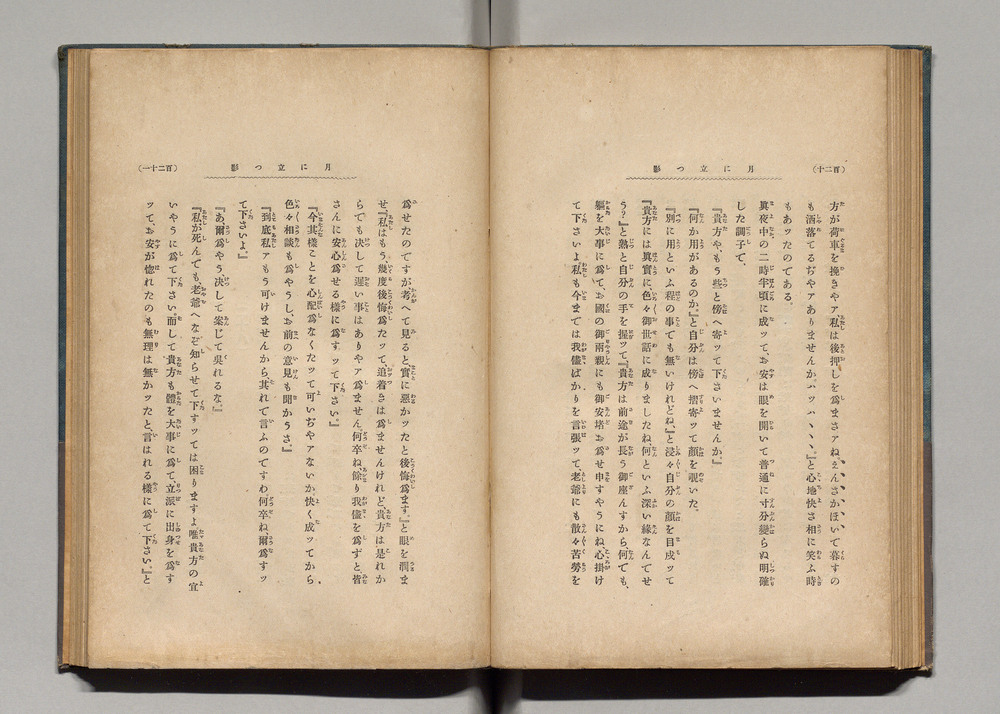 (百二十)
月に立つ影
方が荷車を挽きやア私は後押しを爲まさアねえんさかほいで暮すの
も洒落てるぢやアありませんか。ハツハヽヽヽヽ。』と心地快さ相に笑ふ時
もあッたのである。
眞夜中の二時半頃に成ッて、お安は眼を開いて普通に寸分變らぬ明確
した調子で、
『貴方や、もう些と傍へ寄ッて下さいませんか。』
『何か用があるのか。』と自分は傍へ摺寄ッて顏を覗いた。
『別に用といふ程の事でも無いけれどね。』と浸々自分の顏を目戍ッて
『貴方には眞實に色々御世話に成りましたね、何といふ深い緣なんでせ
う？』と熱と自分の手を握ッて、『貴方は前途が長う御座んすから何でも、
軀を大事に爲て、お國の御兩親にも御安堵お爲せ申すやうにね、心掛け
て下さいよ私も今までは我儘ばかりを言張ッて、老爺にも散々苦勞を
(百二十一)
月に立つ影
爲せたのですが考へて見ると、實に惡かッたと後悔爲ます。』と眼を潤ま
せ、『私はもう幾度後悔爲たッて、追着きは爲ませんけれど、貴方は是れか
らでも決して遲い事はありやア爲ません。何卒ね、餘り我儘を爲ずと、皆
さんに安心爲せる樣に爲すッて下さい。』
『今其樣ことを心配爲なくたッて可いぢやアないか快く成ッてから、
色々相談も爲やうし、お前の意見も聞かうさ。』
『到底私アもう可けませんから、其れで言ふのですわ何卒ね、爾爲すッ
て下さいよ。』
『あ爾爲やう、決して案じて吳れるな。』
『私が死んでも、老爺へなぞ知らせて下すッては困りますよ唯貴方の宜
いやうに爲て下さい。而して貴方も體を大事に爲て、立派に出身を爲す
ッて、お安が惚れたのも無理は無かッたと、言はれる樣に爲て下さい。』と